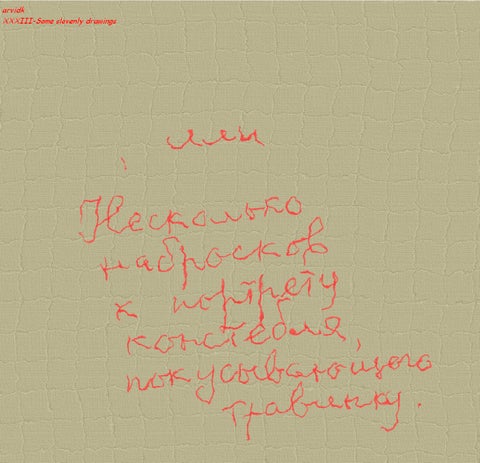 arvidk
XXXIII-Some slovenly drawings
или
Несколько
набросков
к портрету
констебля,
покусывающего
травинку.